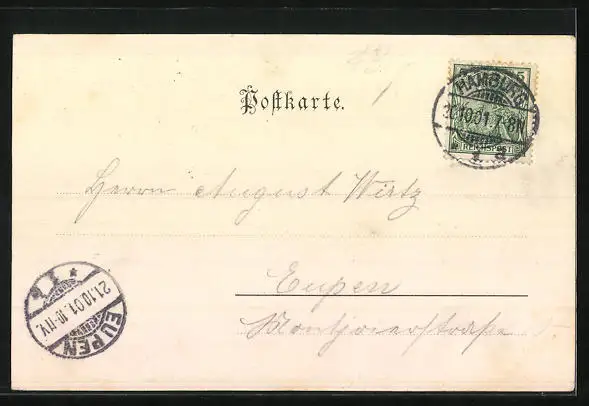 Postkarte.
5
HAMBURG
20.10.01.7-8N
REICHSPOST
Herrn August Wirtz
Eupen
Montjoierstrasse
21.10.01.10-11V.
EUPEN